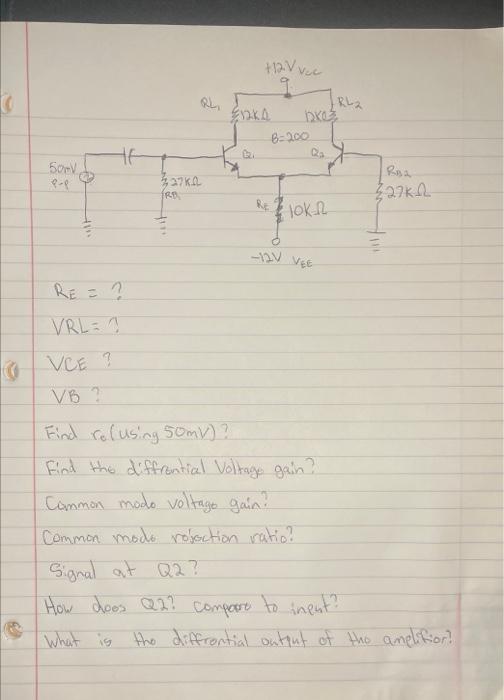 +12V Vcc
RL1 12KΩ 12KΩ RL2
B=200
Q1 Q2
50mV
P-P
27KΩ
RB1
RB2
27KΩ
RE 10KΩ
-12V VEE
RE = ?
VRL= ?
VCE ?
VB ?
Find re(using 50mV)?
Find the diffrential Voltage gain?
Common mode voltage gain?
Common mode rejection ratio?
Signal at Q2?
How does Q2? compare to input?
What is the diffrential output of the amplifier?